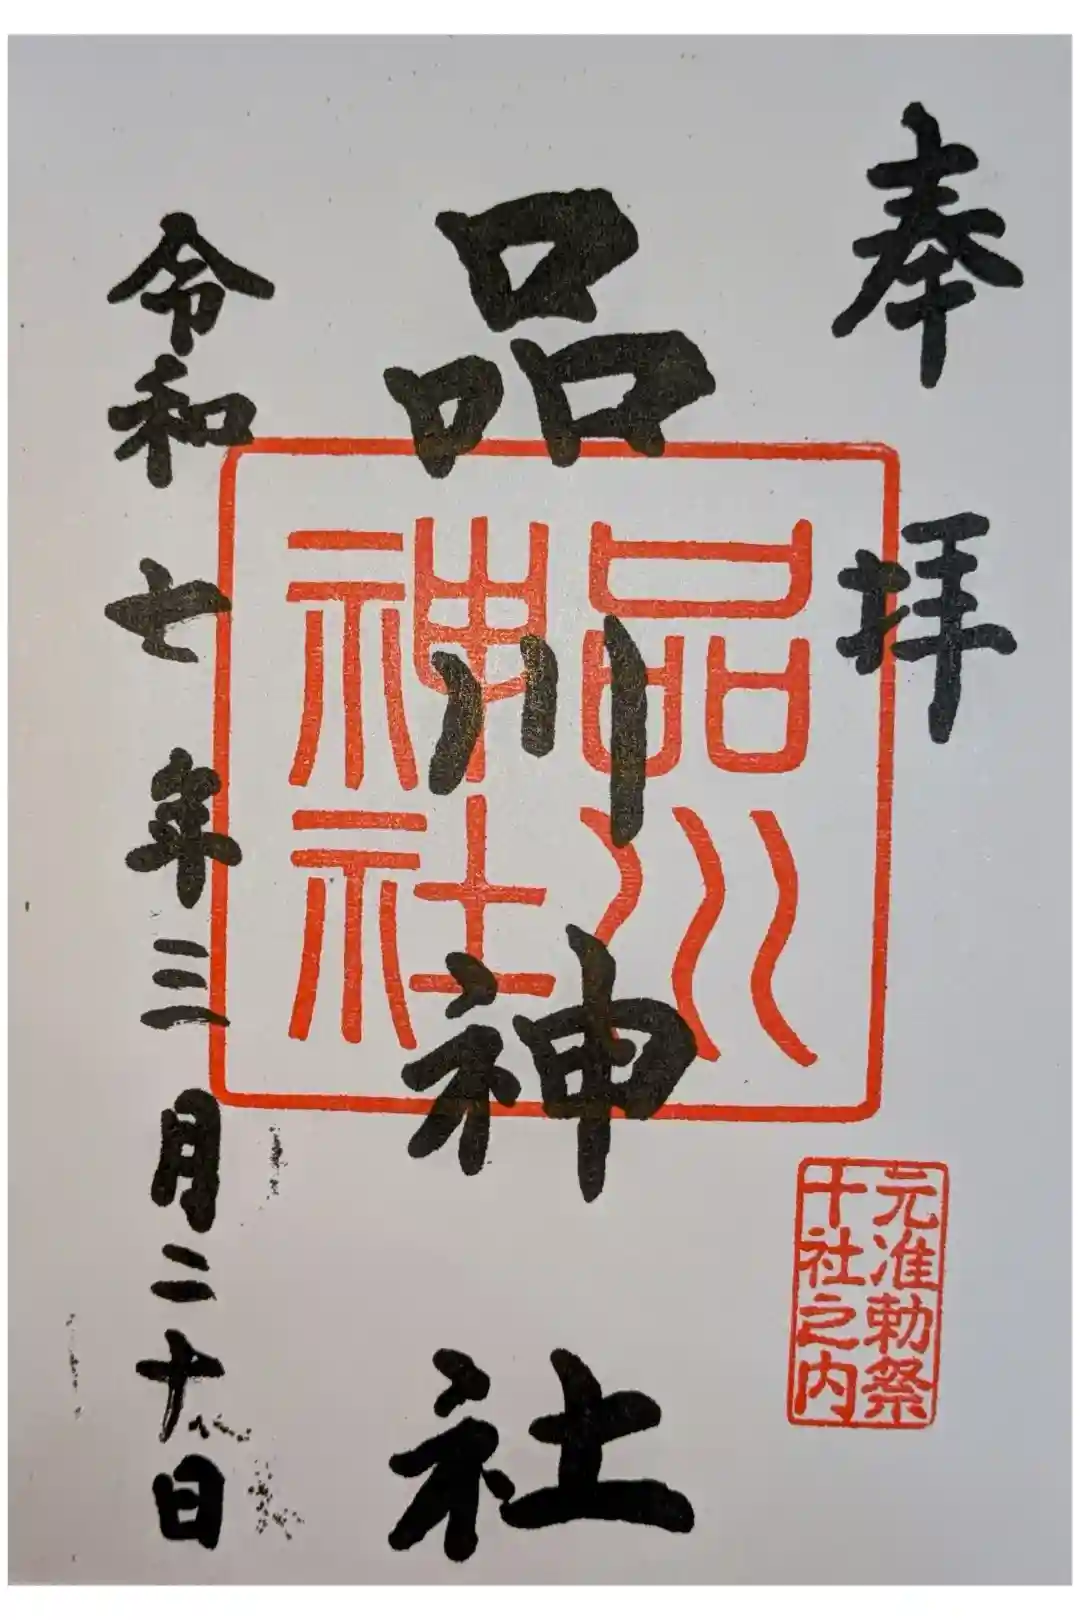 奉拝
品川神社
品川
神社
元准勅祭
十社之内
令和七年三月二十日